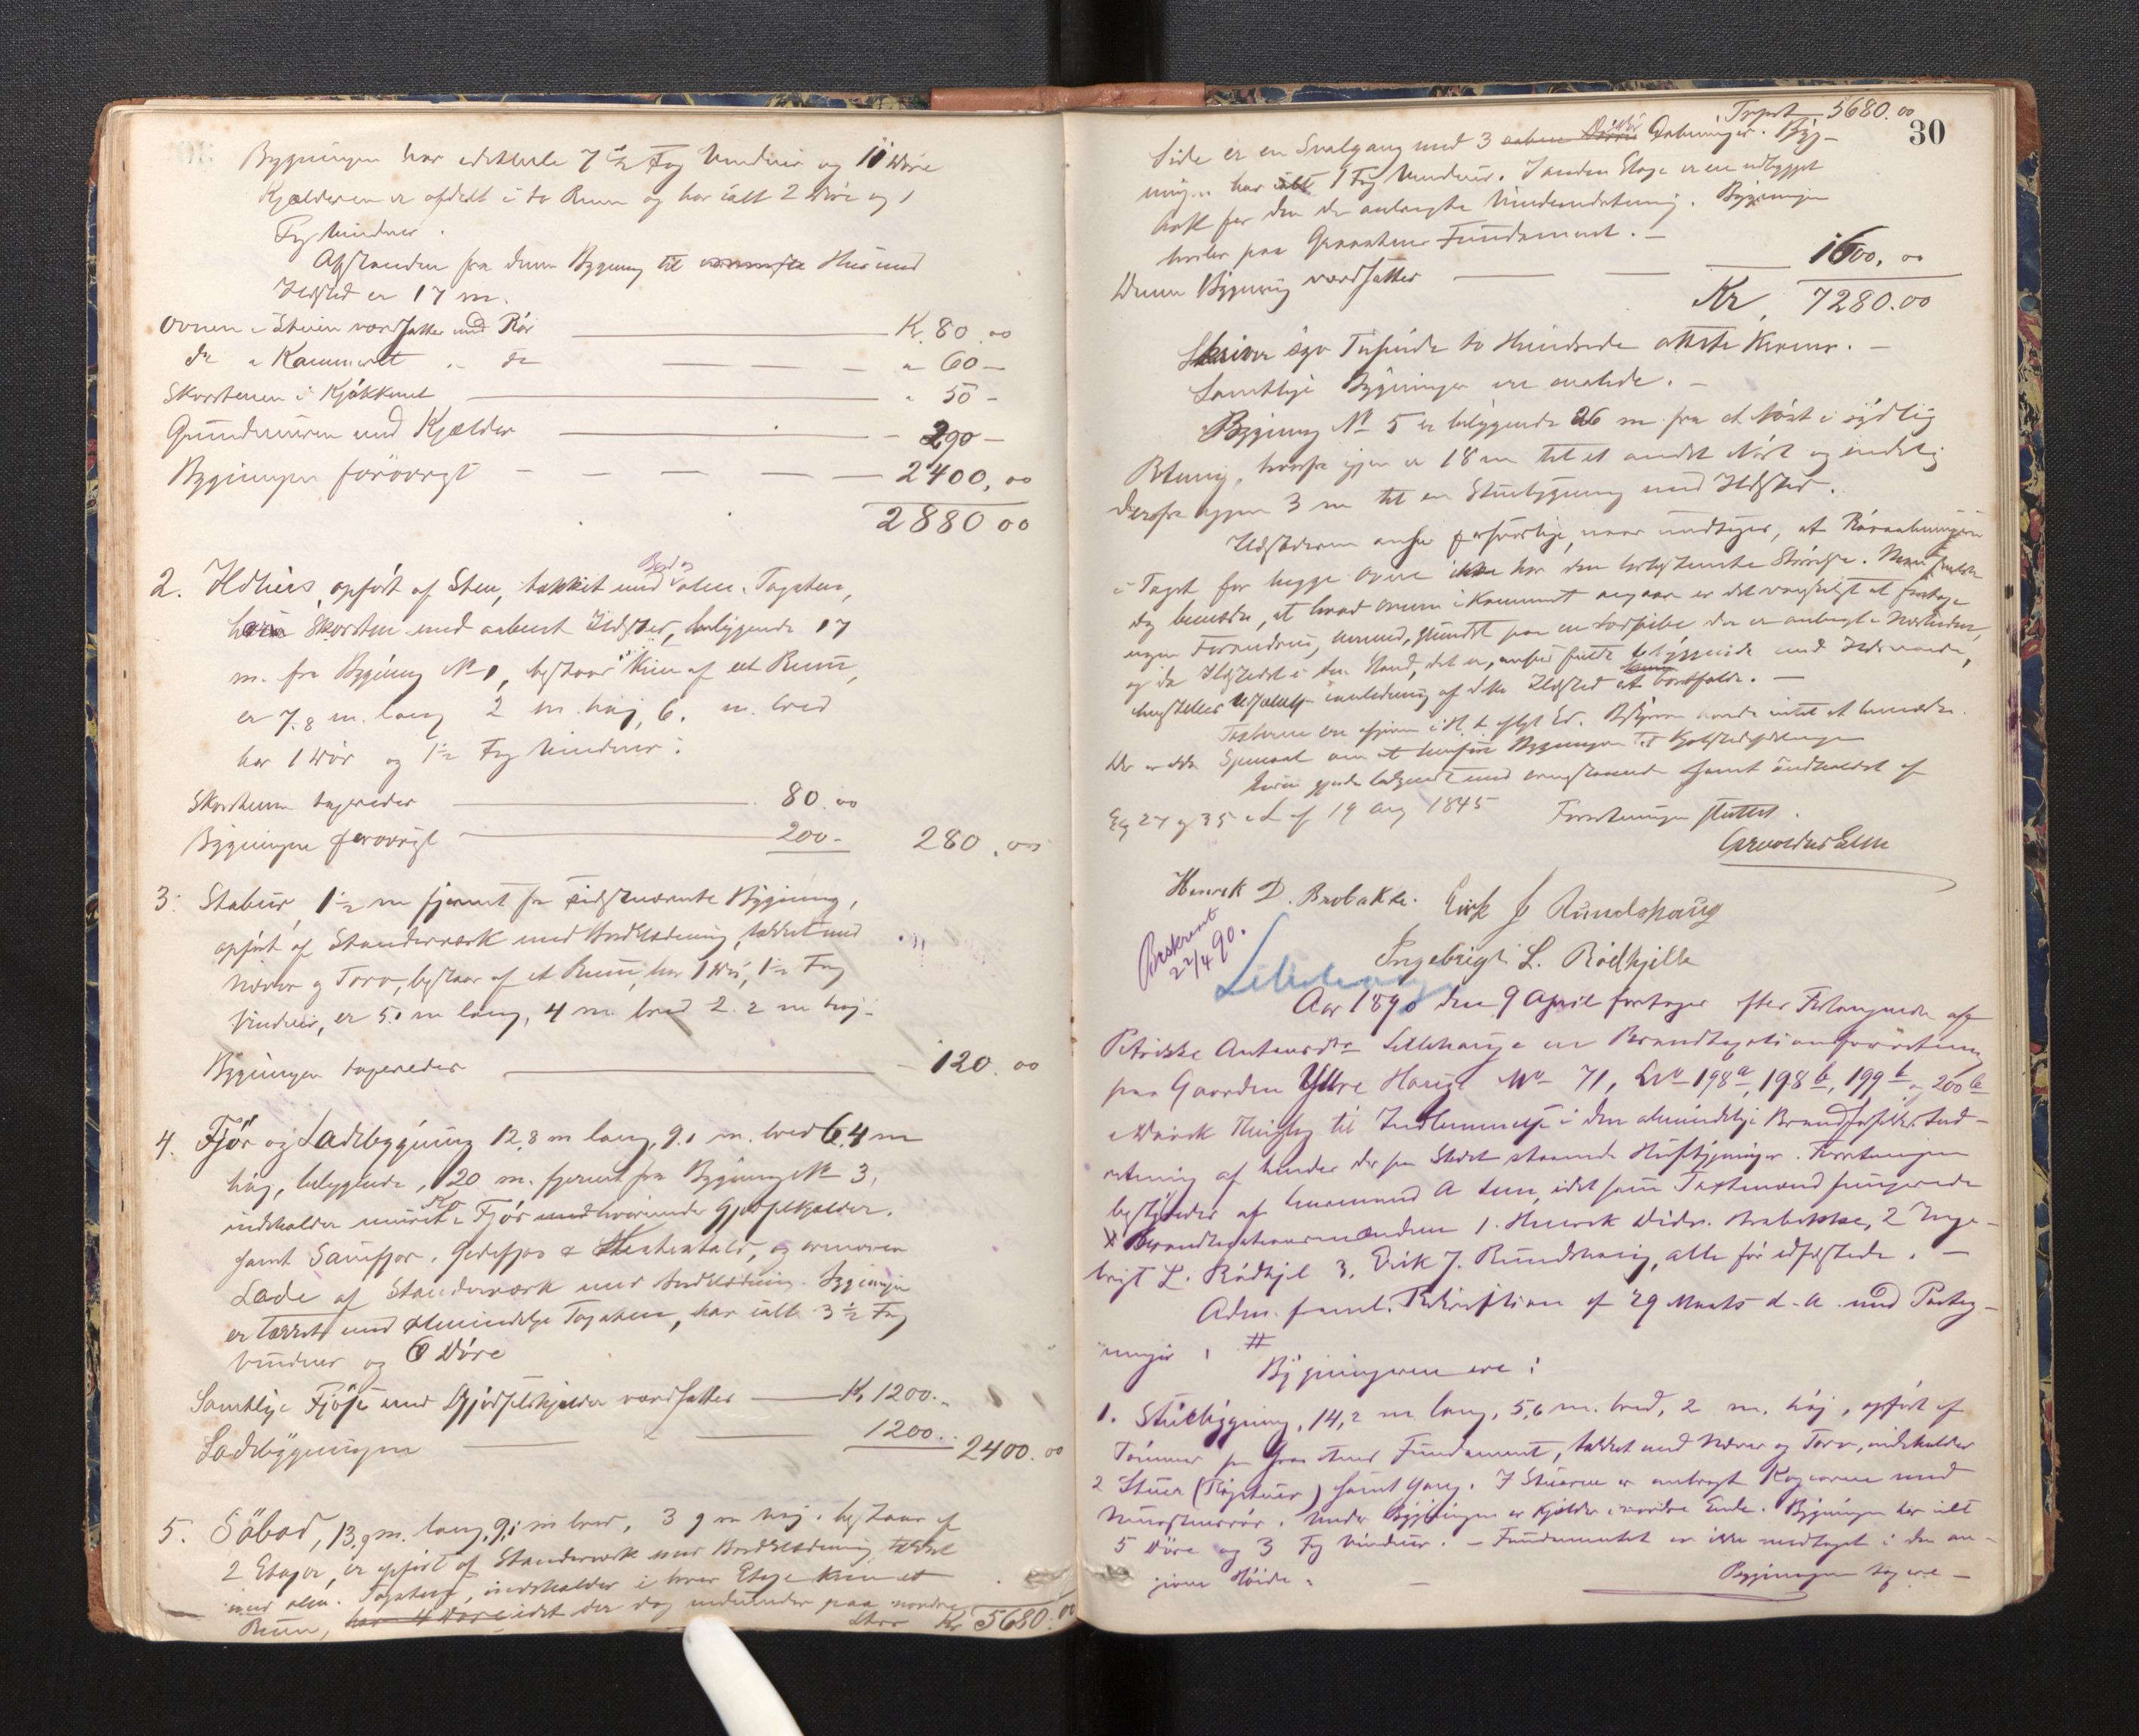 Bygningen har idethele 7 1/2 Fag Vinduer og 11 Døre
Kjælderen er afdelt i to Rum og har ialt 2 Døre og 1
Fag Vinduer.
Afstanden fra denne Bygning til Hus med
Ildsted er 17 m.
Ovnen i Stuen værdsattes med Rør Kr. 80.00
do i Kammeret " do " 60 –
Skorstenen i Kjøkkenet " 50 –
Grundmuren med Kjælder – 290 –
Bygningen forøvrigt – 2400,00
2880 00
2. Ildhus, opført af Sten, tækket med Bord og alm. Tagsten,
har Skorsten med aabent Ildsted, beliggende 17
m. fra Bygning No 1, bestaar kun af et Rum,
er 7.8 m. lang 2 m. høj, 6. m. bred
har 1 Dør og 1 1/2 Fag Vinduer.
Skorstenen taxeredes 80.00
Bygningen forøvrigt 200 – 280.00
3. Stabur, 1 1/2 m fjernet fra sidstnævnte Bygning,
opført af Standerværk med Bordklædning, tækket med
Næver og Torv, bestaar af et Rum, har 1 Dør, 1 1/2 Fag
Vinduer, er 5. m lang, 4 m. bred 2.2 m høj.
Bygningen taxeredes – 120.00
4. Fjøs og Ladebygning 12.8 m lang, 9.1 m. bred 6.4 m
høj, beliggende, 20 m. fjernet fra Bygning No 3,
indeholder muret Ko Fjøs med hvorunder Gjødselkjælder,
samt Sauefjøs, Gedefjøs & Hestestald, og ovenover
Lade af Standerværk med Bordklædning. Bygningen
er tækket med almindelige Tagsten, har ialt 3 1/2 Fag
Vinduer og 6 Døre
Samtlige Fjøse med Gjødselkjælder værdsattes Kr 1200..
Ladebygningen 1200.. 2400.00
5. Søbod, 13.9 m. lang, 9.1 m bred, 3 9 m høj. bestaar af
2 Etager, er opført af Standerværk med Bordklædning tækket
med alm. Tagsten, indeholder i hver Etage kun et
Rum, har 4 Døre idet der dog nedenunder paa nordre
Kr 5680.00
Trpst 5680.00
30
Side er en Svalgang med 3 aabne Døre Aabninger. Byg-
ningen har ialt 1 Fag Vinduer. I anden Etage er en udbygget
Ark for den der anbragte Vindeindretning. Bygningen
hviler paa Graastens Fundament. –
Denne Bygning værdsattes 1600,00
Kr. 7280.00
Skriver syv Tusinde to Hundrede ottete Kroner. –
Samtlige Bygninger ere malede. –
Bygning No 5 er beliggende 26 m fra et Nøst i sydlig
Retning, hvorfra igjen er 18 m til et andet Nøst og endelig
derfra igjen 3 m til en Stuebygning med Ildsted.
Ildstederne ansees forsvarlige, naar undtages, at Røraabningen
i Taget for begge Ovne ikke har den bestemte Størrelse. Man
dog bemærke, at hvad Ovnen i Kammeret angaar er det vanskeligt at foretage
nogen Forandring hermed, grundet paa en
og da Ildstedet i den Stand, det er, ansees fuldt betryggende
Taxterne ere afgivne i H. t. aflagt Ed. Bestyreren havde intet at bemærke.
Der er ikke Spørgsmaal om at henføre Bygningen til
§§ 27 og 35 i L. af 19 Aug 1845 Forretningen sluttet.
Henrik D. Brobakke. Erik J Rundshaug
Ingebrigt L. Rødkjill
Beskrevet
22/4 90.
Lillehauge
Aar 1890 den 9 April foretoges efter Forlangende af
Petrikke Antonsdtr Lillehauge en Brandtaxationsforretning
paa Gaarden Yttre Hauge No 71, Lno 198a, 198b, 199b og 200b
til Indlemmelse i den almindelige Brandforsikr. Ind-
retning af hendes der paa Stedet staaende Husbygninger. Forretningen
bestyredes af Lensmand A Lem, idet som Taxtmænd fungerede
Brandtaxationsmændene 1. Henrik Didr. Brobakke, 2 Inge-
brigt L. Rødkjil 3. Erik J. Rundshaug, alle før edfæstede. –
Adm. freml. Rekvisition af 29 Marts d. A. med Paateg-
ninger. #
Bygningerne ere:
1. Stuebygning, 14,2 m lang, 5,6 m. bred, 2 m. høj, opført af
Tømmer paa Graastens Fundament, tækket med Næver og Torv, indeholder
2 Stuer (Røgstuer) samt Gang. I Stuerne er anbragt Kogeovne med
Under Bygningen er Kjælder i nordre Ende. Bygningen har ialt
5 Døre og 3 Fag Vinduer. – Fundamentet er ikke medtaget i den an-
givne Høide. – Bygningen taxere –